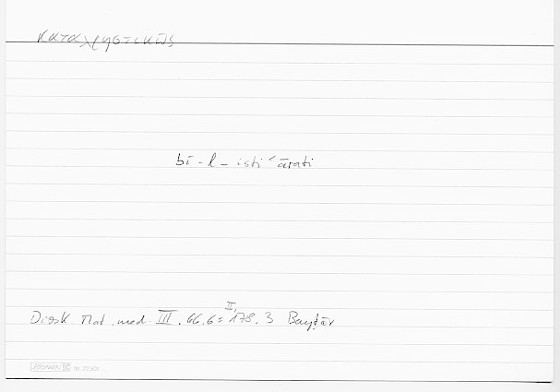 καταχρηστικῶς
bi-l-istiʿārati
Diosk Mat. med. III. 66,6 = II, 178. 3 Bayṭār